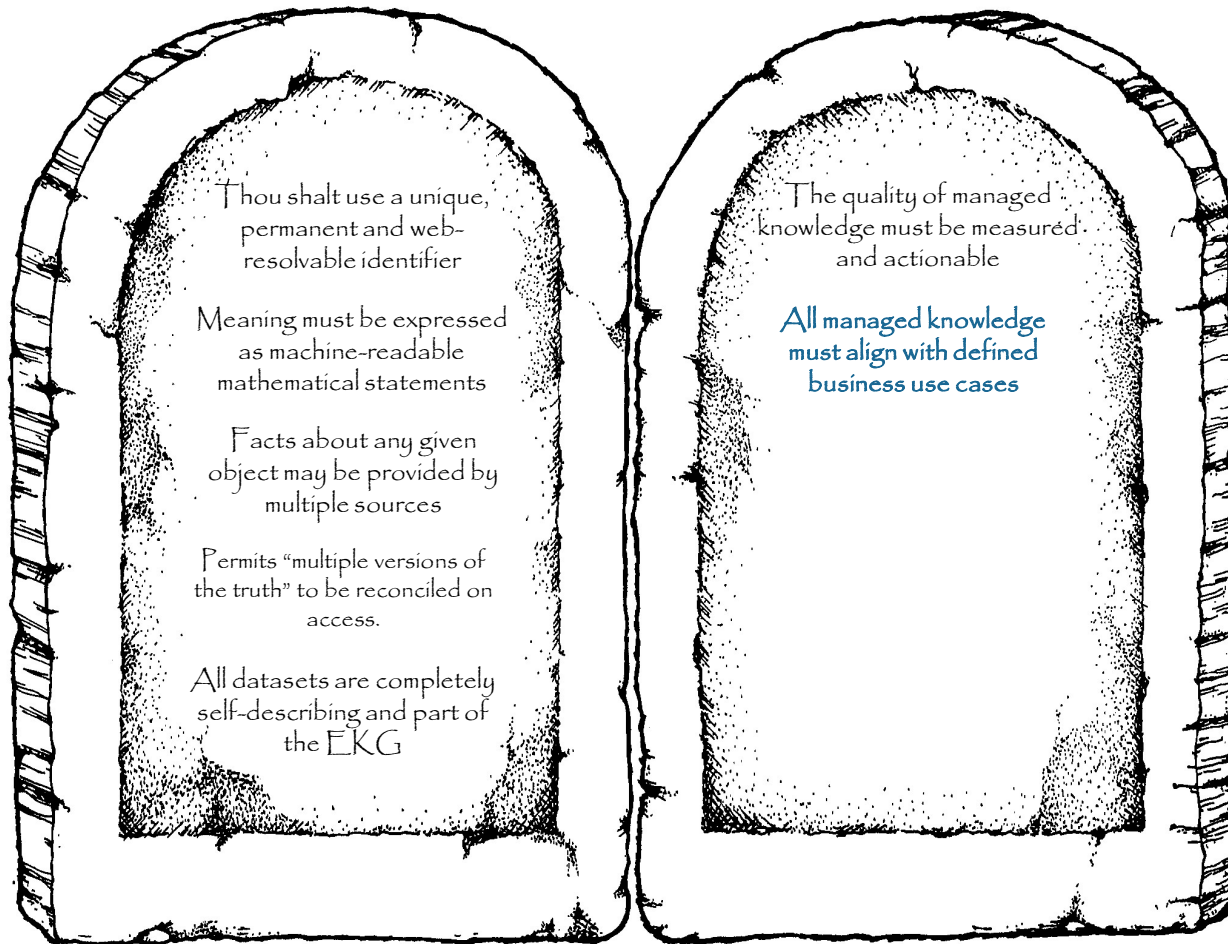 Thou shalt use a unique,
permanent and web-
resolvable identifier
Meaning must be expressed
as machine-readable
mathematical statements
Facts about any given
object may be provided by
multiple sources
Permits “multiple versions of
the truth” to be reconciled on
access.
All datasets are completely
self-describing and part of
the EKG
The quality of managed
knowledge must be measured
and actionable
All managed knowledge
must align with defined
business use cases